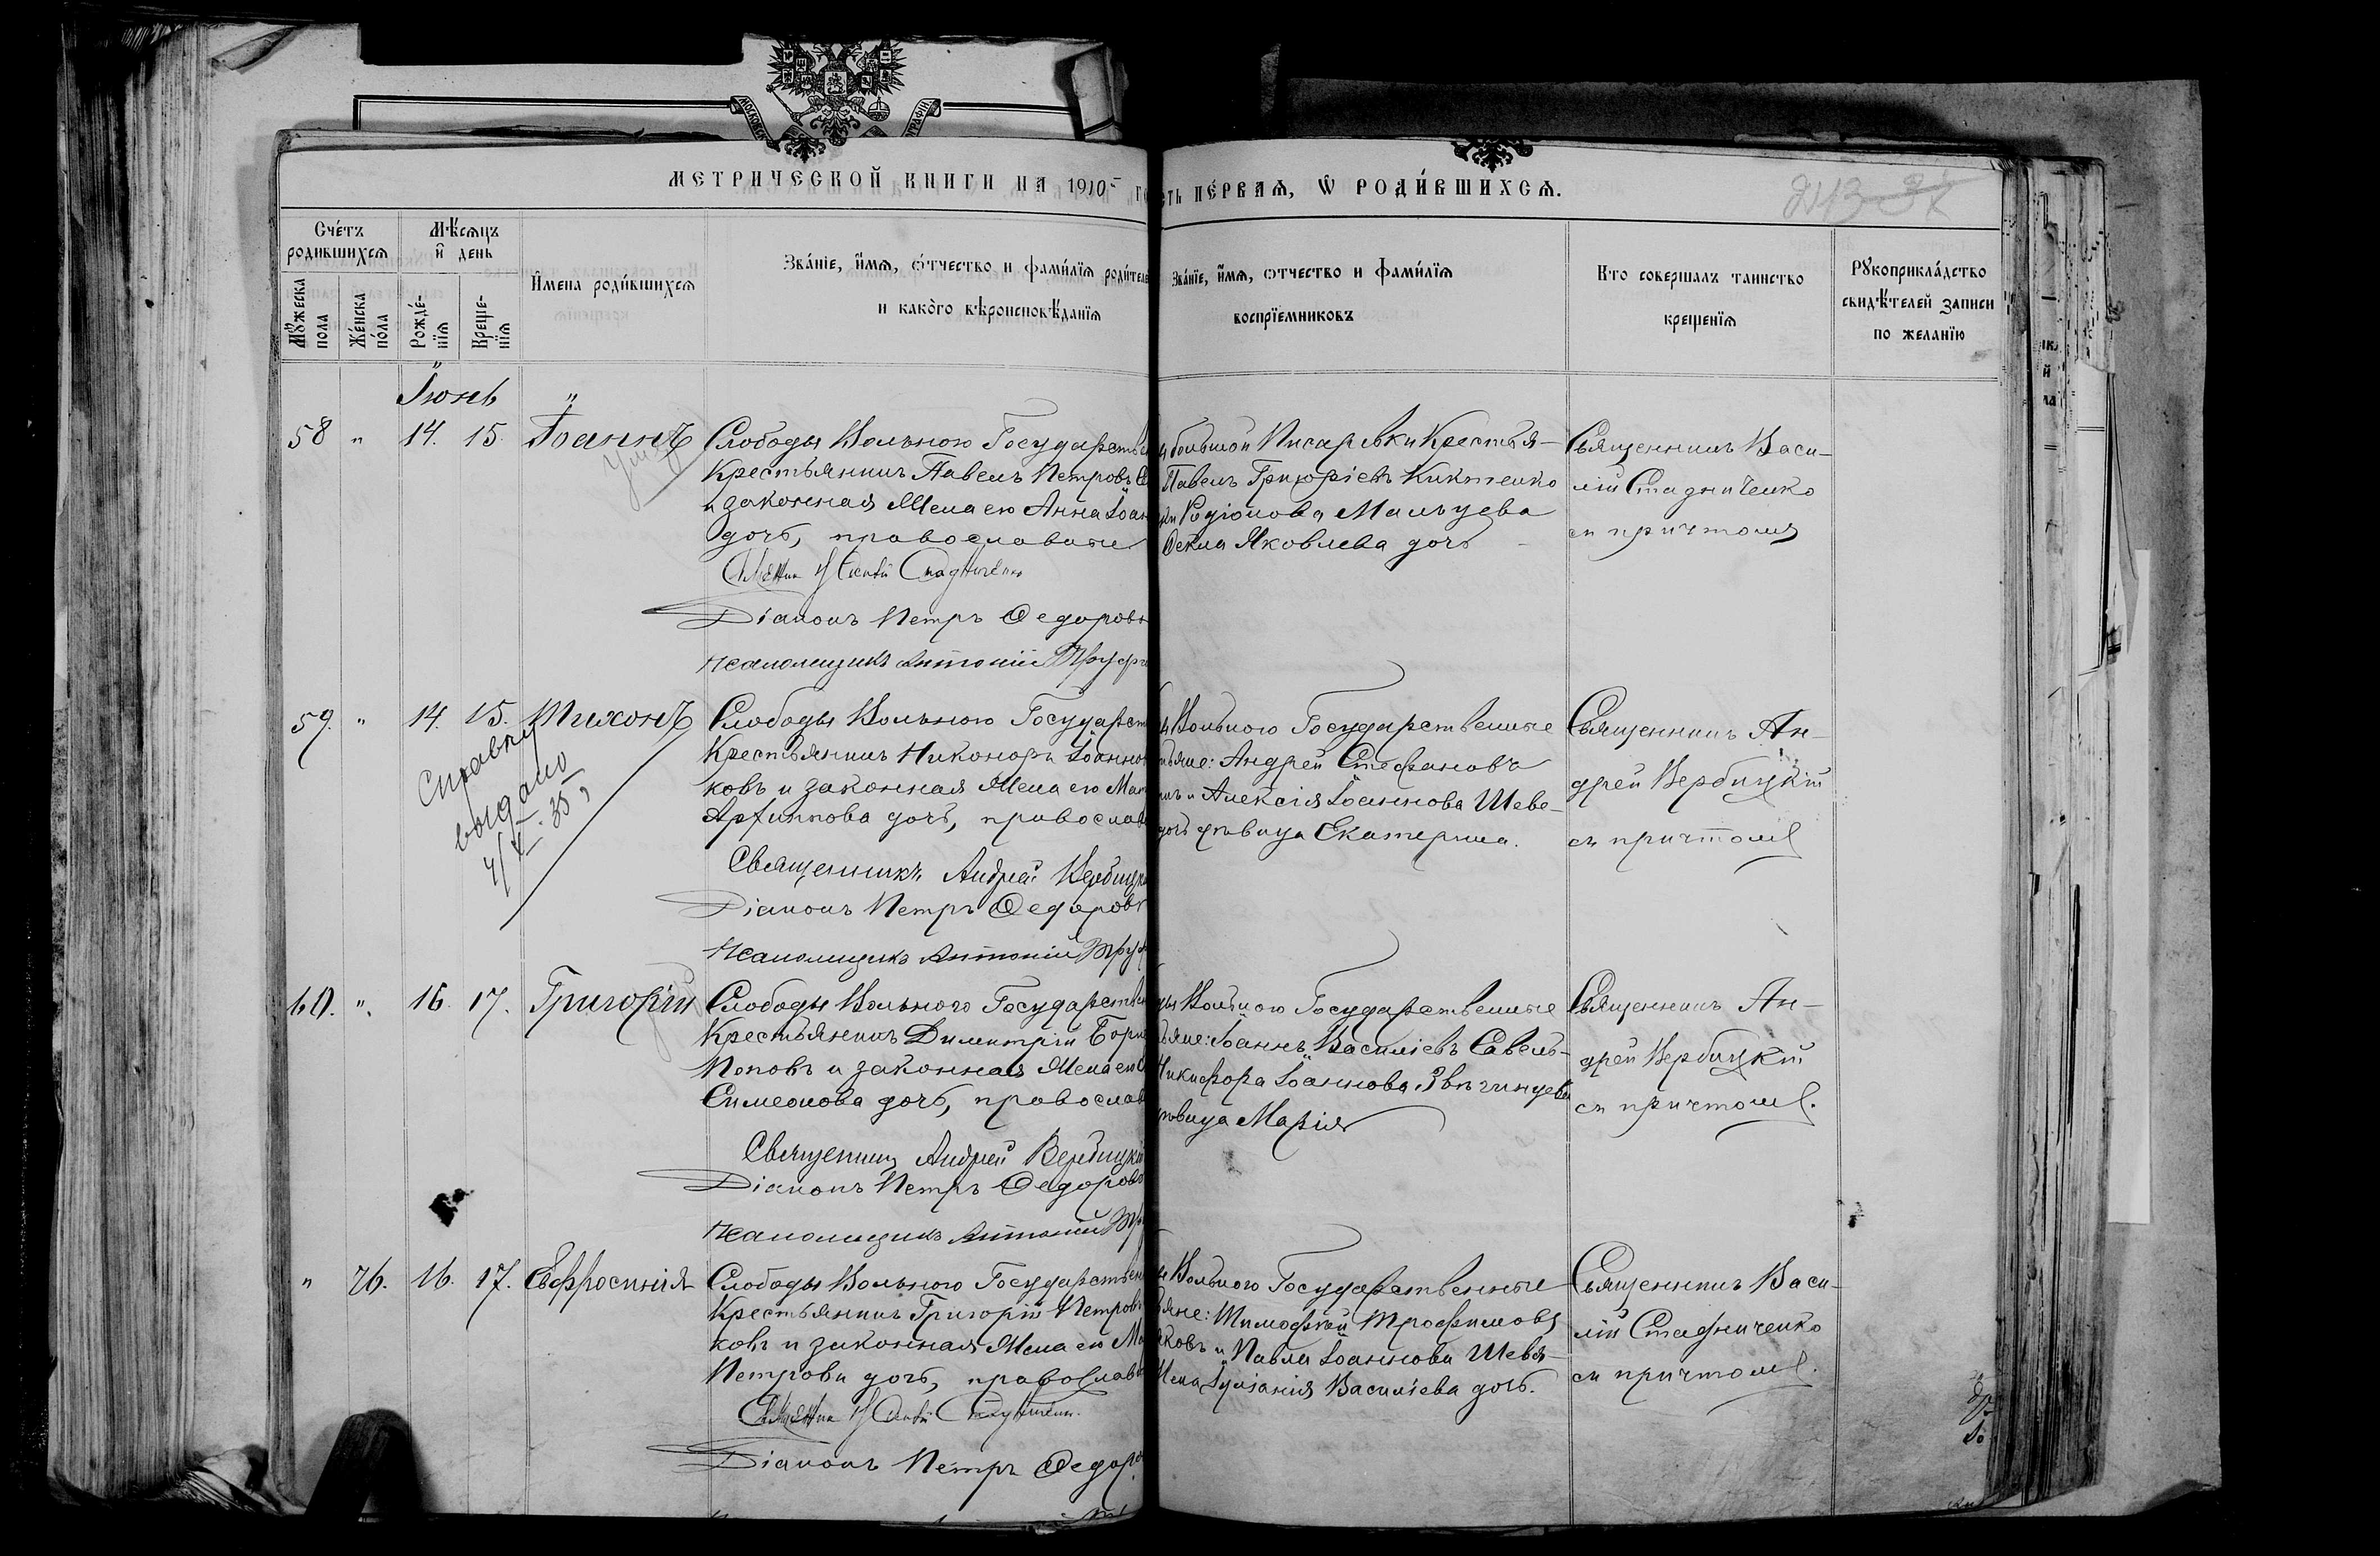 МЕТРИЧЕСКОЙ КНИГИ НА 1910
ПЕ́РВАЯ, Ѡ РОДИ́ВШИХСЯ.
Сче́тъ родившихся
Мѣ́сяцъ и҆ день
И҆мена роди́вшихся
Зва́нїе, и҆́мя, ѻ҆́тчество и фами́лїя родителе
и како́го вѣроисповѣ́данїя
Мꙋжеска пола
Же́нска по́ла
Рожде́нїя
Креще́нїя
Зва́нїе, и҆́мя, ѻтчество и фами́лїя
воспрїемниковъ
Кто совершалъ таинство
крещенїя
Рꙋкоприкла́дство
свидѣ́телей записи
по желанїю
Іюнь
58 " 14. 15. Іоаннъ
Слободы Вольного Государствен
Крестьянинъ Павелъ Петровъ
и законная Жена его Анна Іоан
дочь, православные
Діаконъ Петръ Ѳедоровъ
Псаломщикъ Антоній
большой Писаревки Крестья-
Павелъ Григоріевъ Никитенко
Родіонова Мальцева
Ѳекла Яковлева дочь
Священникъ Васи-
лій Стадниченко
съ причтомъ
59. " 14. 15. Тихонъ
Справку
выдано
4/V 35
Слободы Вольного Государст
Крестьянинъ Никоноръ Іоанно
ковъ и законная Жена его Мат
Архиппова дочь, православ
Священникъ Андрей Вербицкі
Діаконъ Петръ Ѳедоровъ
Псаломщикъ Антоній
Вольного Государственные
Андрей Стефановъ
и Алексія Іоаннова Шеве-
дочь дѣвица Екатерина.
Священникъ Ан-
дрей Вербицкій
съ причтомъ
60. " 16. 17. Григорій
Слободы Вольного Государствен
Крестьянинъ Димитрій Бори
Поповъ и законная Жена его
Симеонова дочь, православ
Священникъ Андрей Вербицкій
Діаконъ Петръ Ѳедоровъ
Псаломщикъ Антоній
Вольного Государственные
Іоаннъ Василіевъ Савель-
Никифора Іоаннова Звягинцева
дѣвица Марія
Священникъ Ан-
дрей Вербицкій
съ причтомъ.
" 76. 16. 17. Евфросинія
Слободы Вольного Государствен
Крестьянинъ Григорій Петровъ
ковъ и законная Жена его Ма
Петрова дочь, православ
Діаконъ Петръ Ѳедоро
Вольного Государственные
Тимофей Трофимовъ
ковъ и Павла Іоаннова Шевя-
Жена Іуліанія Василіева дочь.
Священникъ Васи-
лій Стадниченко
съ причтомъ.